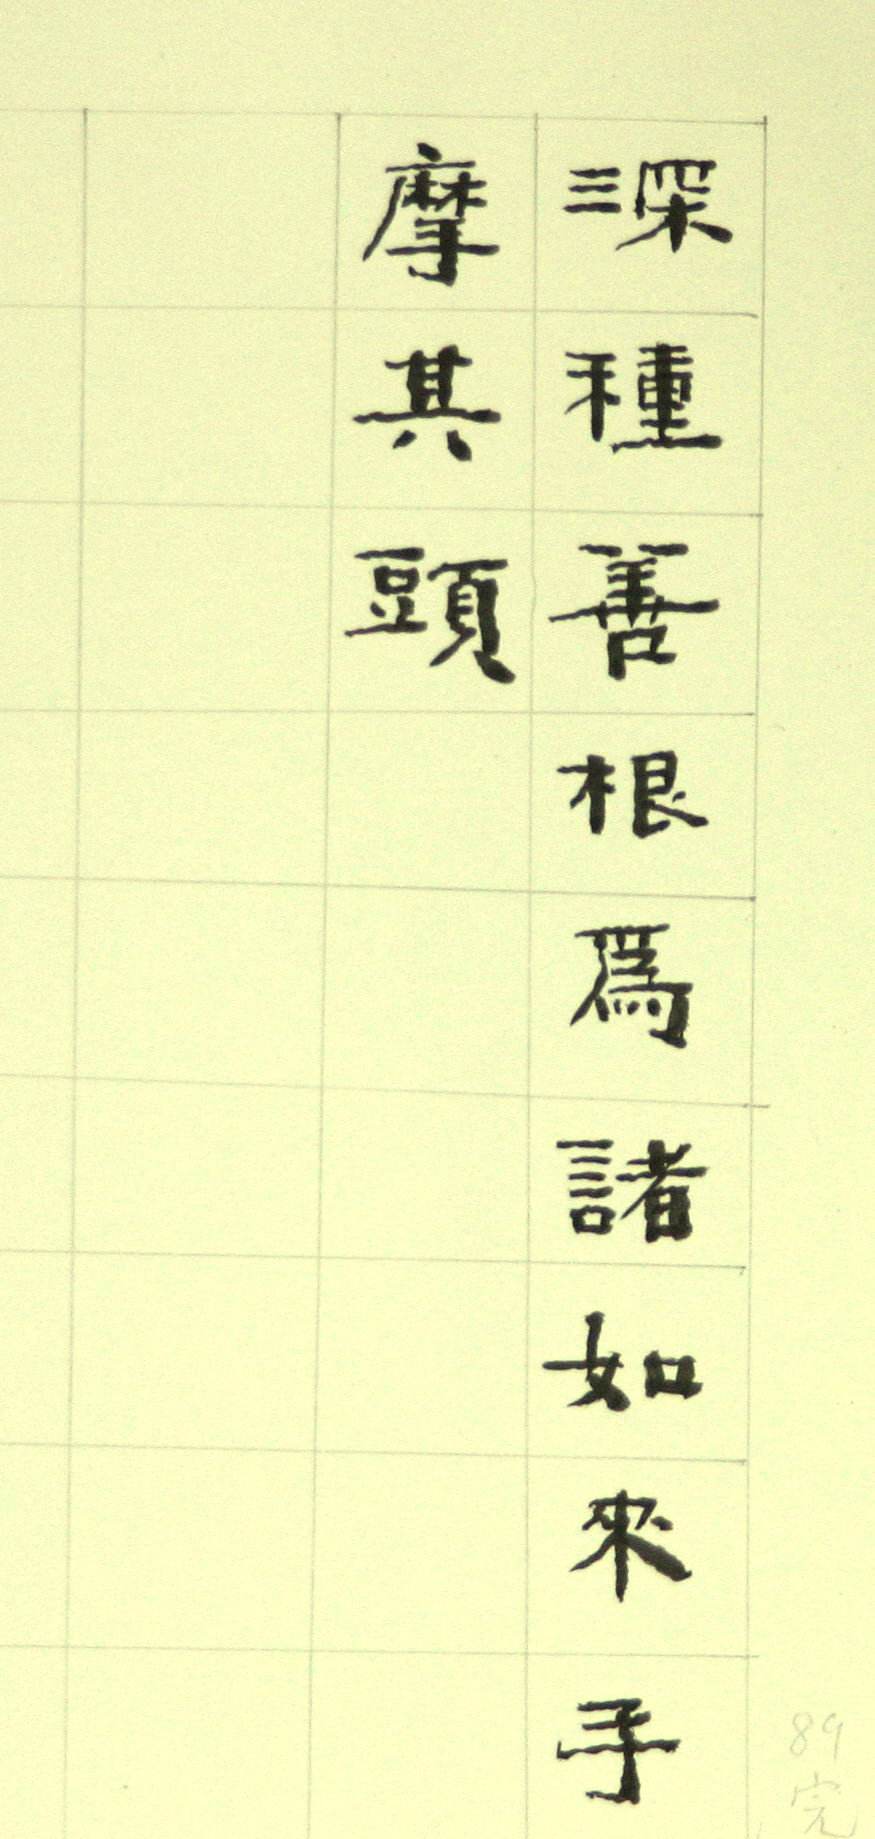 深種善根爲諸如來手
摩其頭
89
完